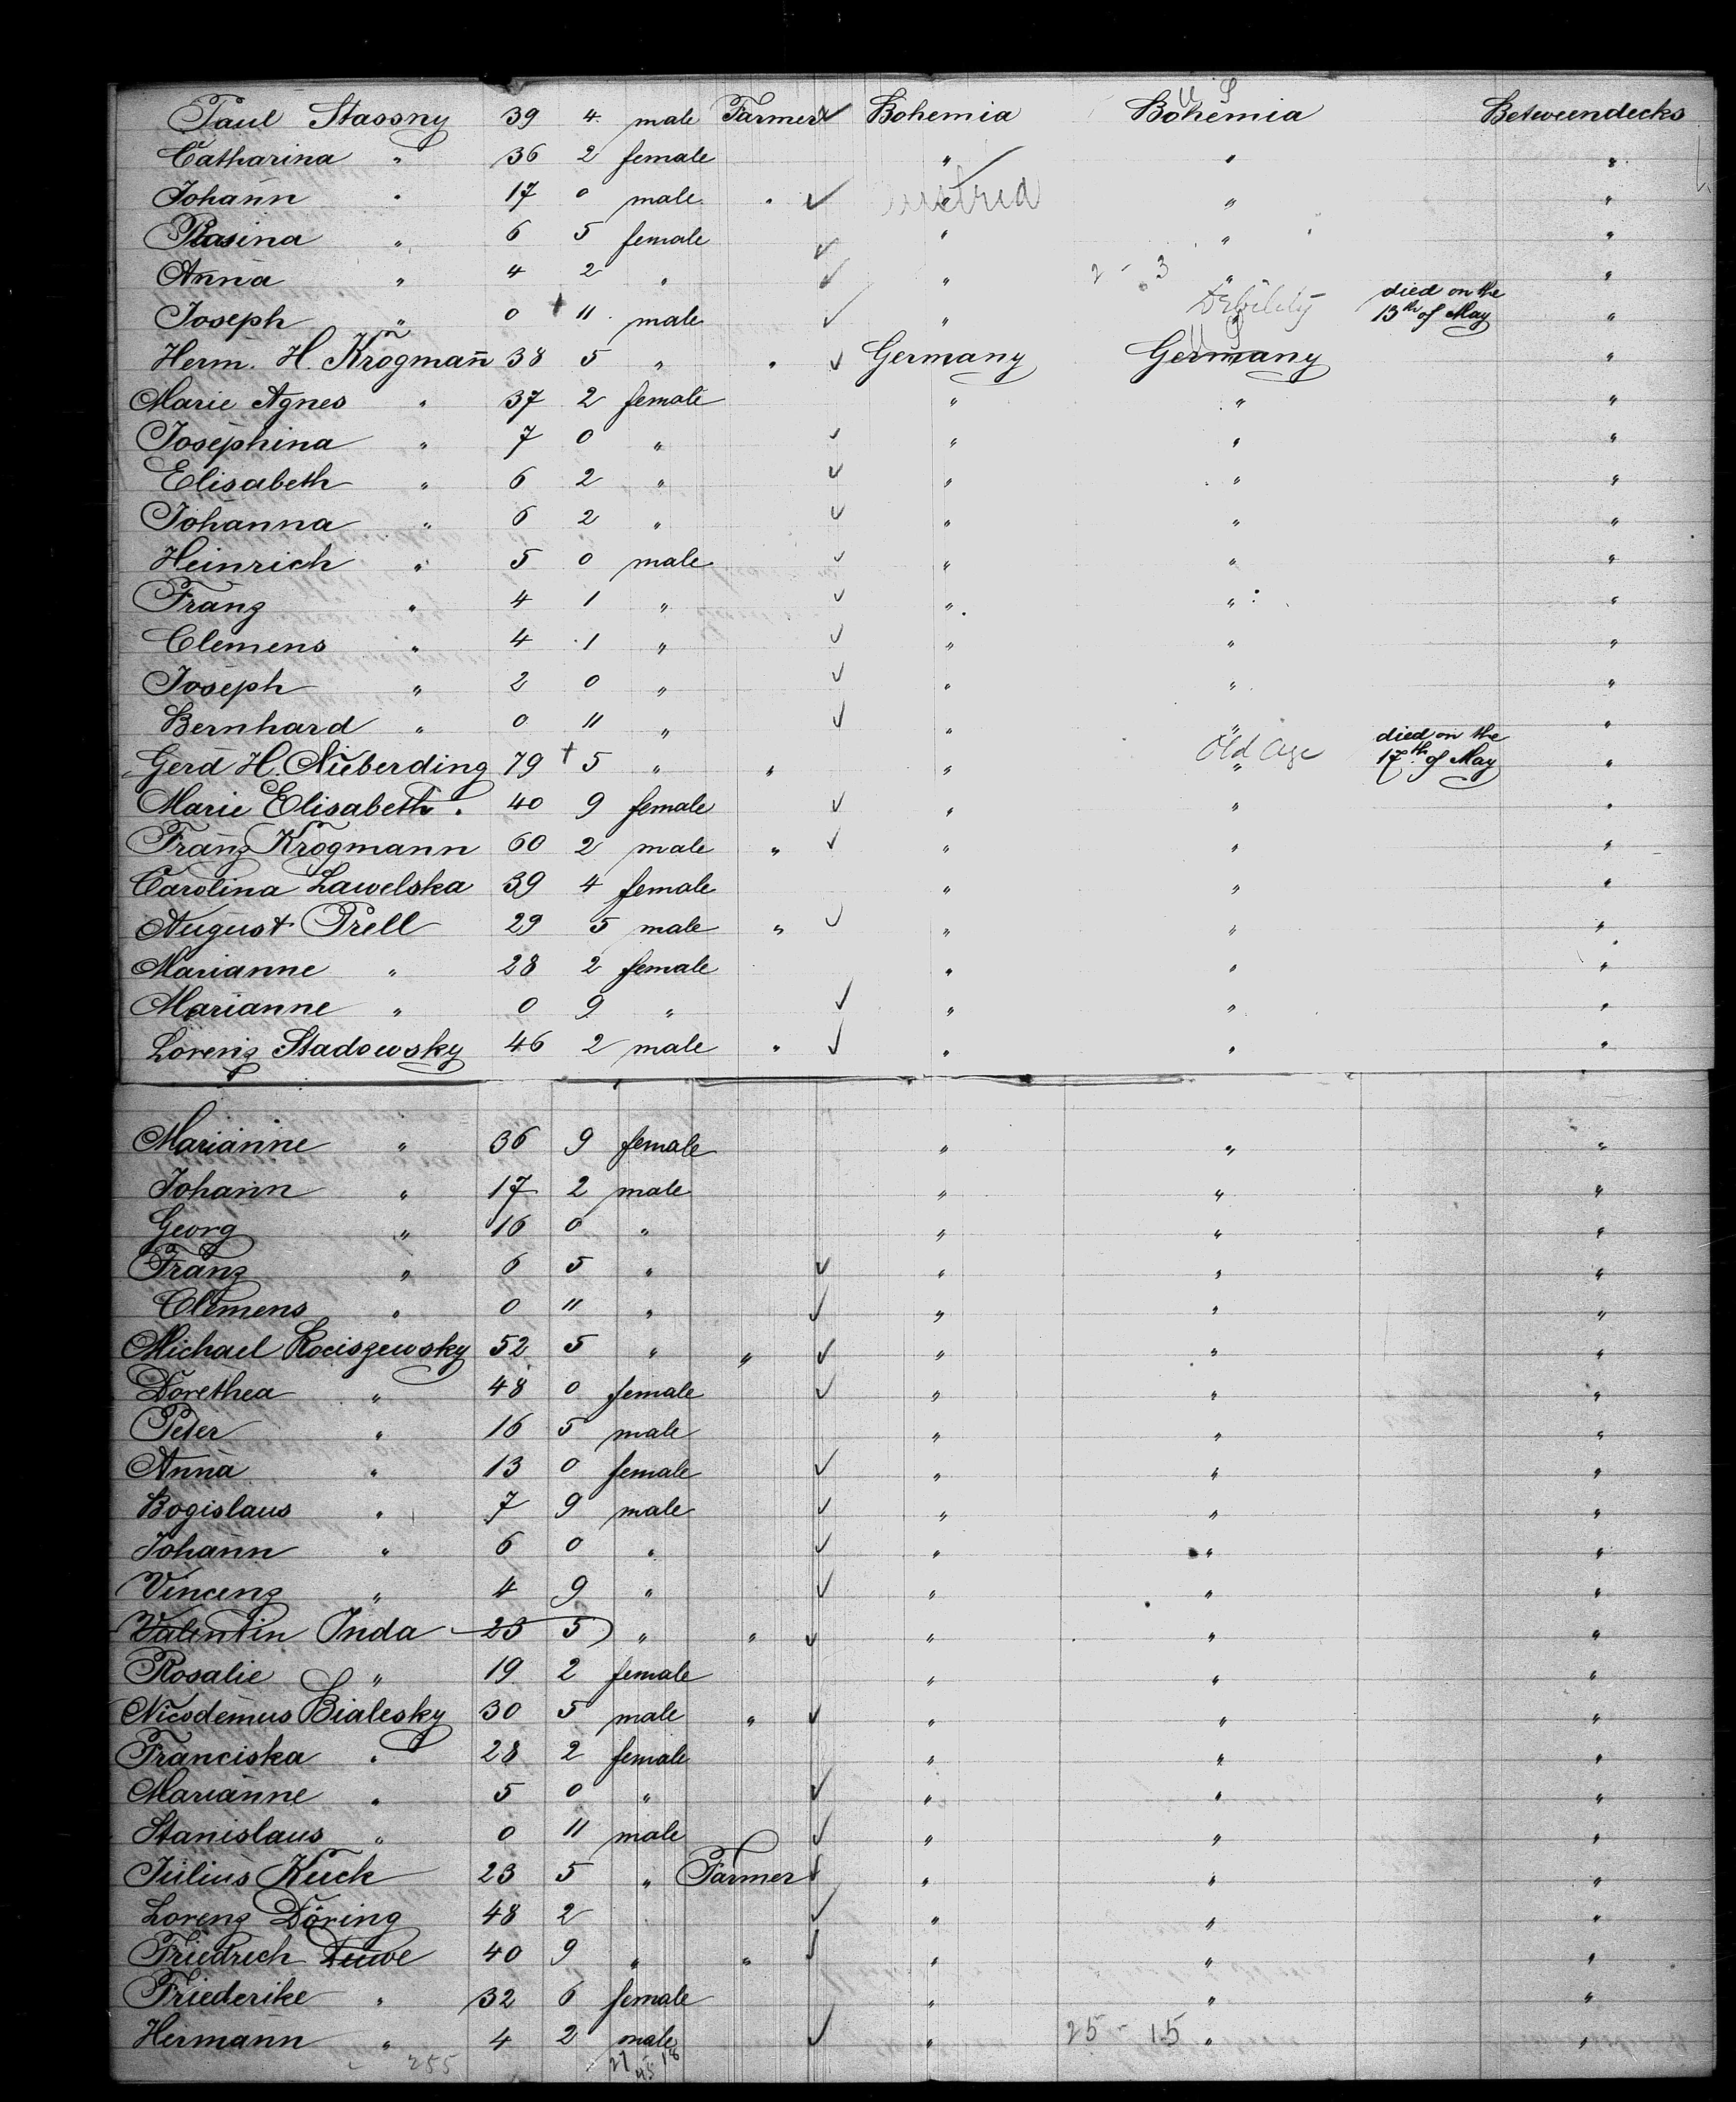 U S
Paul Stassny 39 4 male Farmer Bohemia Bohemia Betweendecks
Catharina " 36 2 female " " "
Johann " 17 0 male " Austria " " "
Rosina " 6 5 female " " "
Anna " 4 2 " " 2 - 3 " "
Joseph " 0 + 11 male " Debility " died on the 13th of May "
U S
Herm. H. Krogmann 38 5 " " Germany Germany "
Marie Agnes " 37 2 female " " "
Josephina " 7 0 " " " "
Elisabeth " 6 2 " " " "
Johanna " 6 2 " " " "
Heinrich " 5 0 male " " "
Franz " 4 1 " " " "
Clemens " 4 1 " " " "
Joseph " 2 0 " " " "
Bernhard " 0 11 " " " "
Gerd H. Nieberding 79 + 5 " " " Old Age " died on the 17th of May "
Marie Elisabeth " 40 9 female " " "
Franz Krogmann 60 2 male " " " "
Carolina Lawelska 39 4 female " " "
August Prell 29 5 male " " " "
Marianne " 28 2 female " " "
Marianne " 0 9 " " " "
Lorenz Stadowsky 46 2 male " " " "
Marianne " 36 9 female " " "
Johann " 17 2 male " " "
Georg " 16 0 " " " "
Franz " 6 5 " " " "
Clemens " 0 11 " " " "
Michael Rociszewsky 52 5 " " " " "
Dorethea " 48 0 female " " "
Peter " 16 5 male " " "
Anna " 13 0 female " " "
Bogislaus " 7 9 male " " "
Johann " 6 0 " " " "
Vincenz " 4 9 " " " "
Valentin Inda 23 5 " " " " "
Rosalie " 19 2 female " " "
Nicodemus Bialesky 30 5 male " " " "
Franciska " 28 2 female " " "
Marianne " 5 0 " " " "
Stanislaus " 0 11 male " " "
Julius Kuck 23 5 " Farmer " " "
Lorenz Döring 48 2 " " "
Friedrich Duwe 40 9 " " " " "
Friederike " 32 6 female " " "
Hermann " 4 2 male " 25 - 15 " "
255 27 18